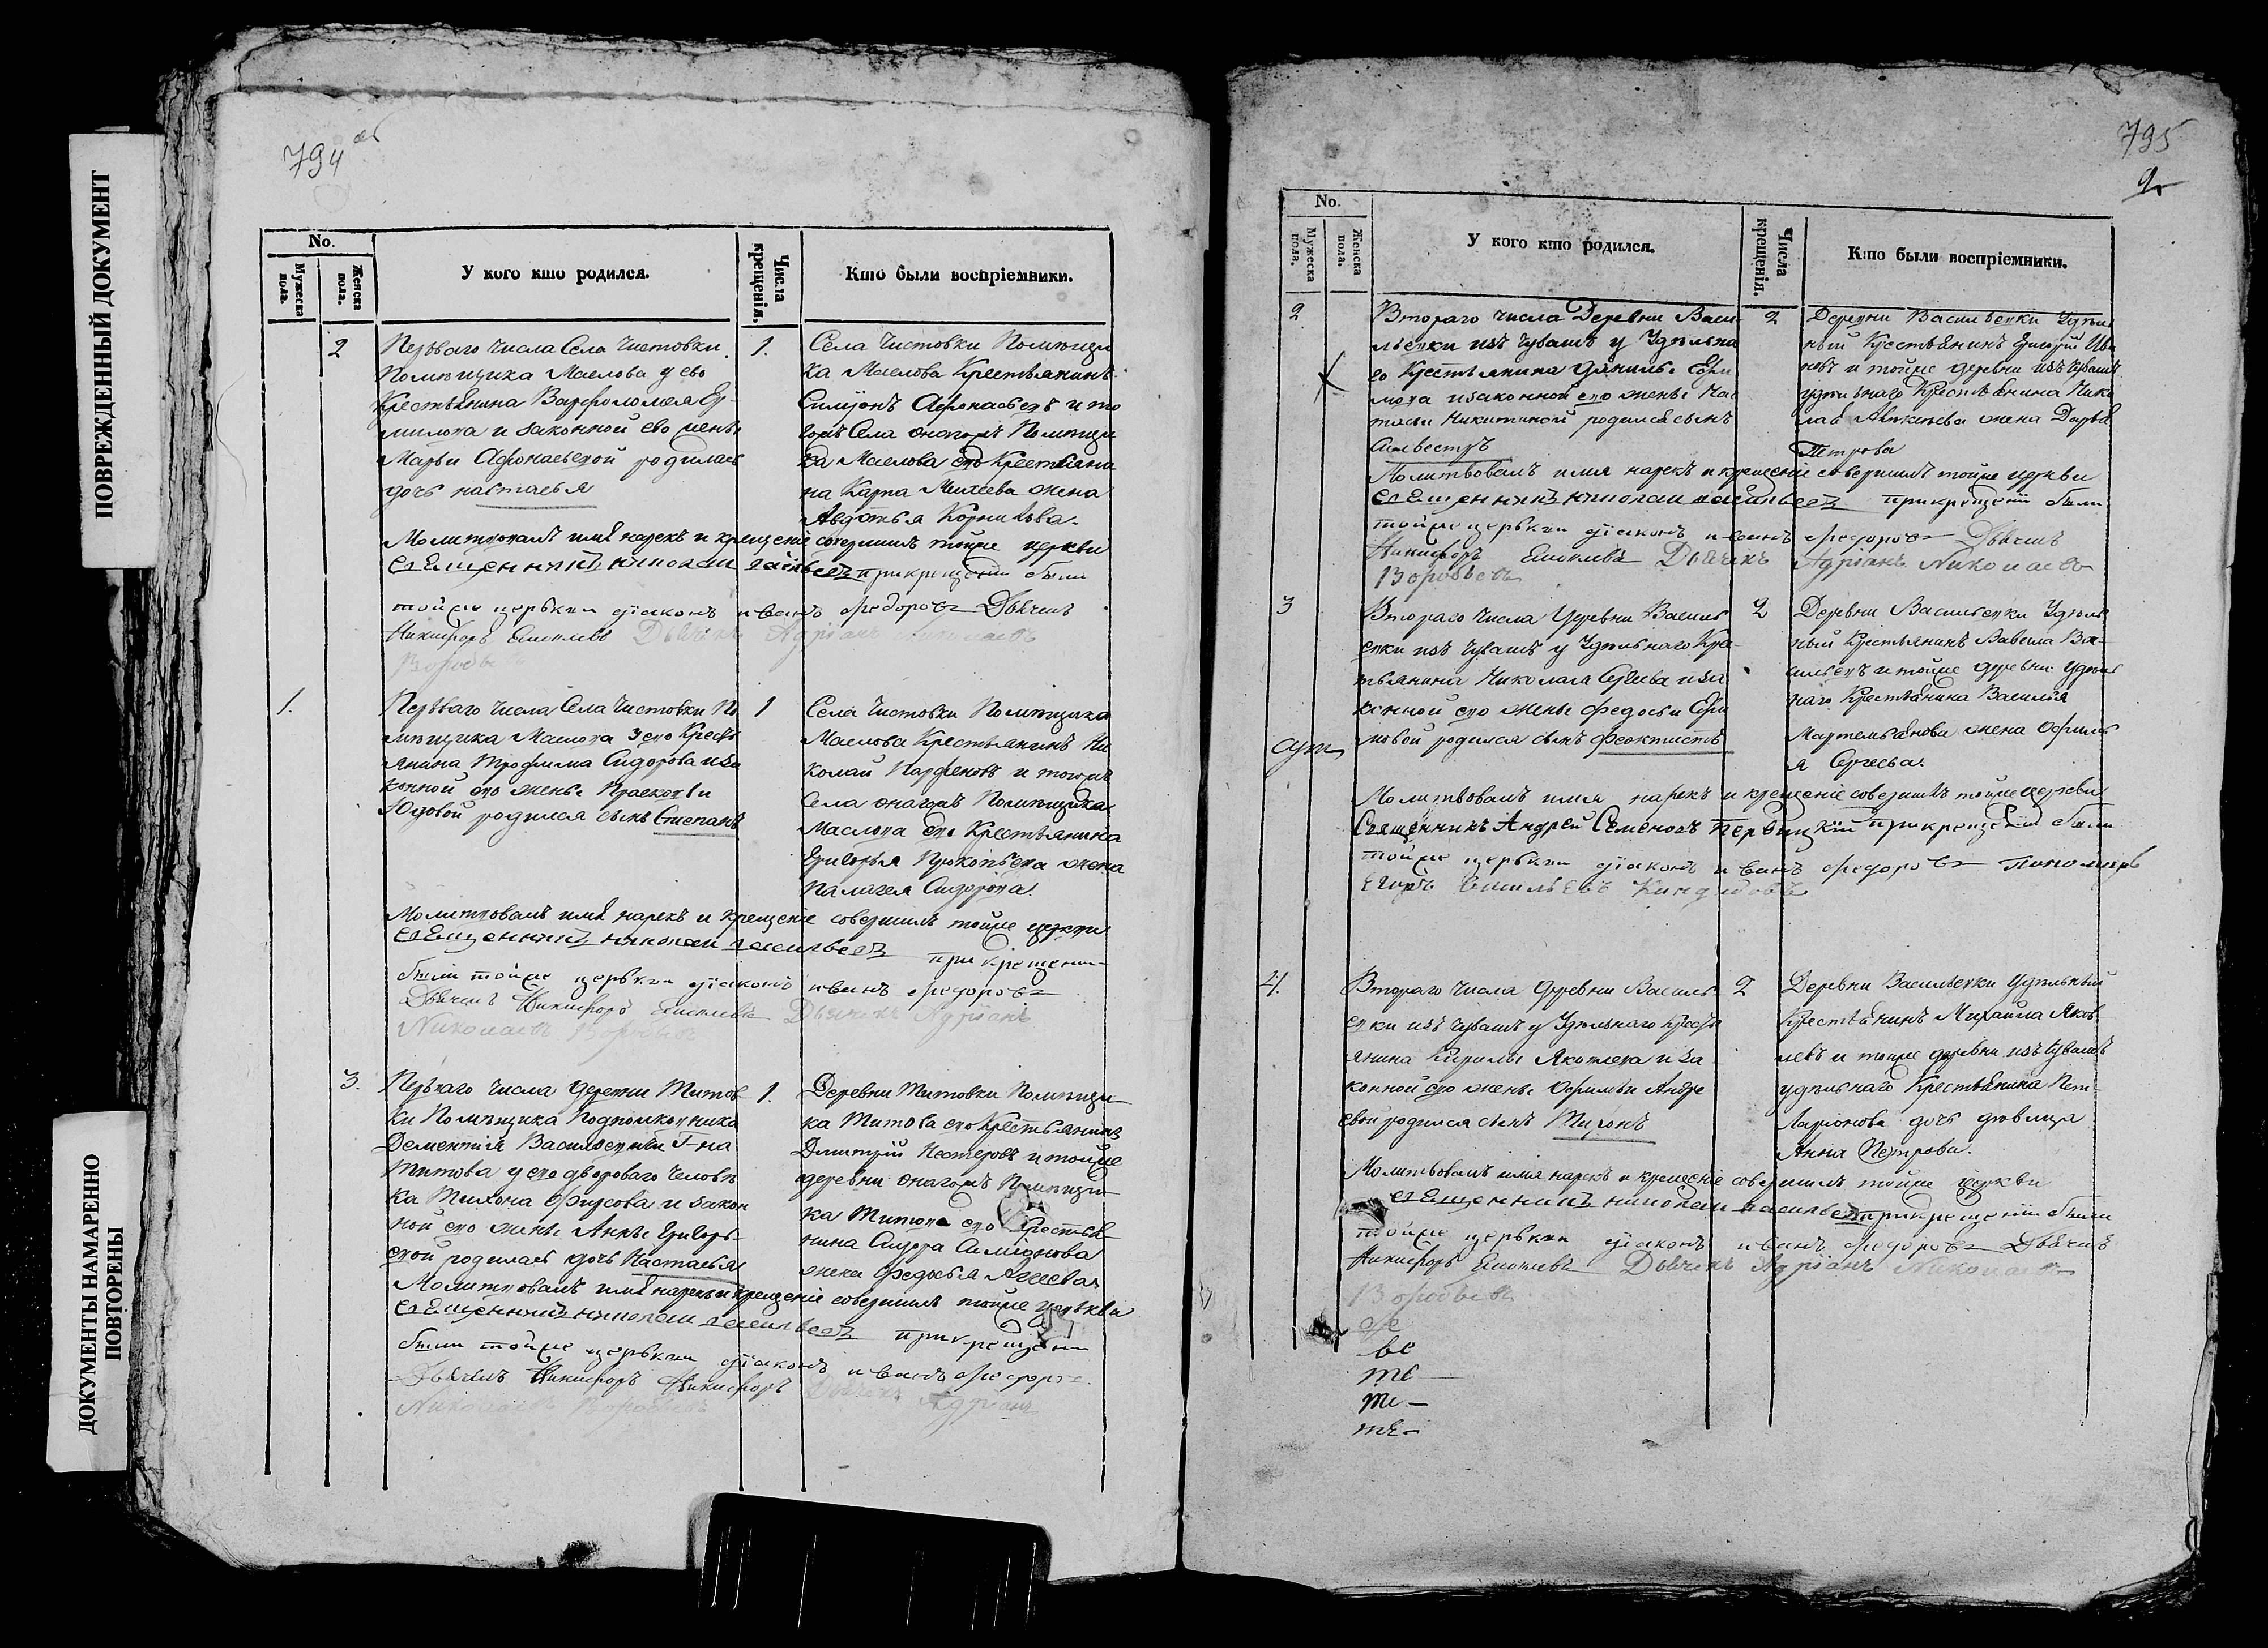 ПОВРЕЖДЕННЫЙ ДОКУМЕНТ
ДОКУМЕНТЫ НАМАРЕННО
ПОВТОРЕНЫ
794 об
No.
Мужеска пола.
Женска пола.
У кого кто родился.
Числа крещенія.
Кто были воспріемники.
2
Перваго числа Села Чистовки
Помѣщика Маслова у ево
Крестьянина Варфоломея Ер-
милова и законной ево жены
Марьи Афонасьевой родилась
дочь настасья
1.
Села Чистовки Помѣщи
ка Маслова Крестьянинъ
Симіонъ Афонасьевъ и то
гожъ Села онагожъ Помѣщи
ка Маслова его Крестьяни
на Карпа Михеева жена
Авдотья Корнилова.
Молитвовалъ имя нарекъ и крещеніе совершилъ тойже церкви
священникъ николай васильевъ при крещеніи были
тойже церькви діаконъ иванъ федоровъ Дьячекъ
Никифоръ Дьячекъ Адріанъ Николаевъ
Воробьевъ
1.
Перваго числа Села Чистовки По
мѣщика Маслова у его Кресть
янина Трофима Сидорова и за
конной его жены Прасковьи
родился сынъ Степанъ
1
Села Чистовки Помѣщика
Маслова Крестьянинъ Ни
колай Парфеновъ и тогожъ
Села онагожъ Помѣщика
Маслова его Крестьянина
Григорья Прокопьева жена
Палагея Сидорова.
Молитвовалъ имя нарекъ и крещеніе совершилъ тойже церкви
священникъ николай васильевъ при крещении
были тойже церькви діаконъ иванъ федоровъ
Дьячекъ Никифоръ Дьячекъ Адріанъ
Николаевъ Воробьевъ
3.
Перваго числа деревни Титов
ки Помѣщика Подполковника
Дементія Васильевича Г-на
Титова у его двороваго человѣ
ка Тихона Фирсова и закон
ной его жены Анны Григорь
евой родилась дочь Настасья
1.
Деревни Титовки Помѣщи
ка Титова его Крестьянинъ
Дмитрій Нестеровъ и тойже
деревни онагожъ Помѣщи
ка Титова его Крестья
нина Сидора Симіонова
жена Федосья Агеева
Молитвовалъ имя нарекъ и крещеніе совершилъ тойже церькви
священникъ николай васильевъ при крещеніи
были тойже церькви діаконъ иванъ федоровъ
Дьячекъ Никифоръ Никифоръ Дьячекъ Адріанъ
Николаевъ Воробьевъ
795
No.
Мужеска пола.
Женска пола.
У кого кто родился.
Числа крещенія.
Кто были воспріемники.
2
Втораго числа Деревни Васи
льевки изъ чувашъ у Удѣльна
го Крестьянина Данилы Ефи
мова и законной его жены Нас
тасьи Никитиной родился сынъ
Силвестръ
2
Деревни Васильевки Удѣль
ный Крестьянинъ Григорій Ива
новъ и тойже деревни изъ чувашъ
удѣльнаго Крестьянина Нико
лая жена Дарья
Петрова
Молитвовалъ имя нарекъ и крещеніе совершилъ тойже церкви
священникъ николай васильевъ при крещеніи были
тойже церькви діаконъ иванъ федоровъ Дьячекъ
Никифоръ Дьячекъ Адріанъ Николаевъ
Воробьевъ
3
Втораго числа Деревни Василь
евки изъ чувашъ у Удѣльнаго Крес
тьянина Николая Сергеева и за
конной его жены Федосьи Ефи
мовой родился сынъ Феоктистъ
2
Деревни Васильевки Удѣль
ный Крестьянинъ Вавила Ва-
сильевъ и тойже деревни удѣль
наго Крестьянина Василья
Мартемьянова жена Офимь
я Сергеева.
Молитвовалъ имя нарекъ и крещеніе совершилъ тойже церкви
Священникъ Андрей Семеновъ при крещеніи были
тойже церькви діаконъ иванъ федоровъ пономарь
Егоръ Васильевъ
4.
Втораго числа Деревни Василь
евки изъ чувашъ у Удѣльнаго Кресть
янина Кирилы Яковлева и за
конной его жены Офимьи Андре
евой родился сынъ Тихонъ
2
Деревни Васильевки Удѣльный
Крестьянинъ Михайла Яков
левъ и тойже деревни изъ чувашъ
удѣльнаго Крестьянина Пет-
Ларіонова дочь дѣвица
Анна Петрова.
Молитвовалъ имя нарекъ и крещеніе совершилъ тойже церкви
священникъ николай васильевъ при крещеніи были
тойже церькви діаконъ иванъ федоровъ Дьячекъ
Никифоръ Дьячекъ Адріанъ Николаевъ
Воробьевъ
ве
те
те
те